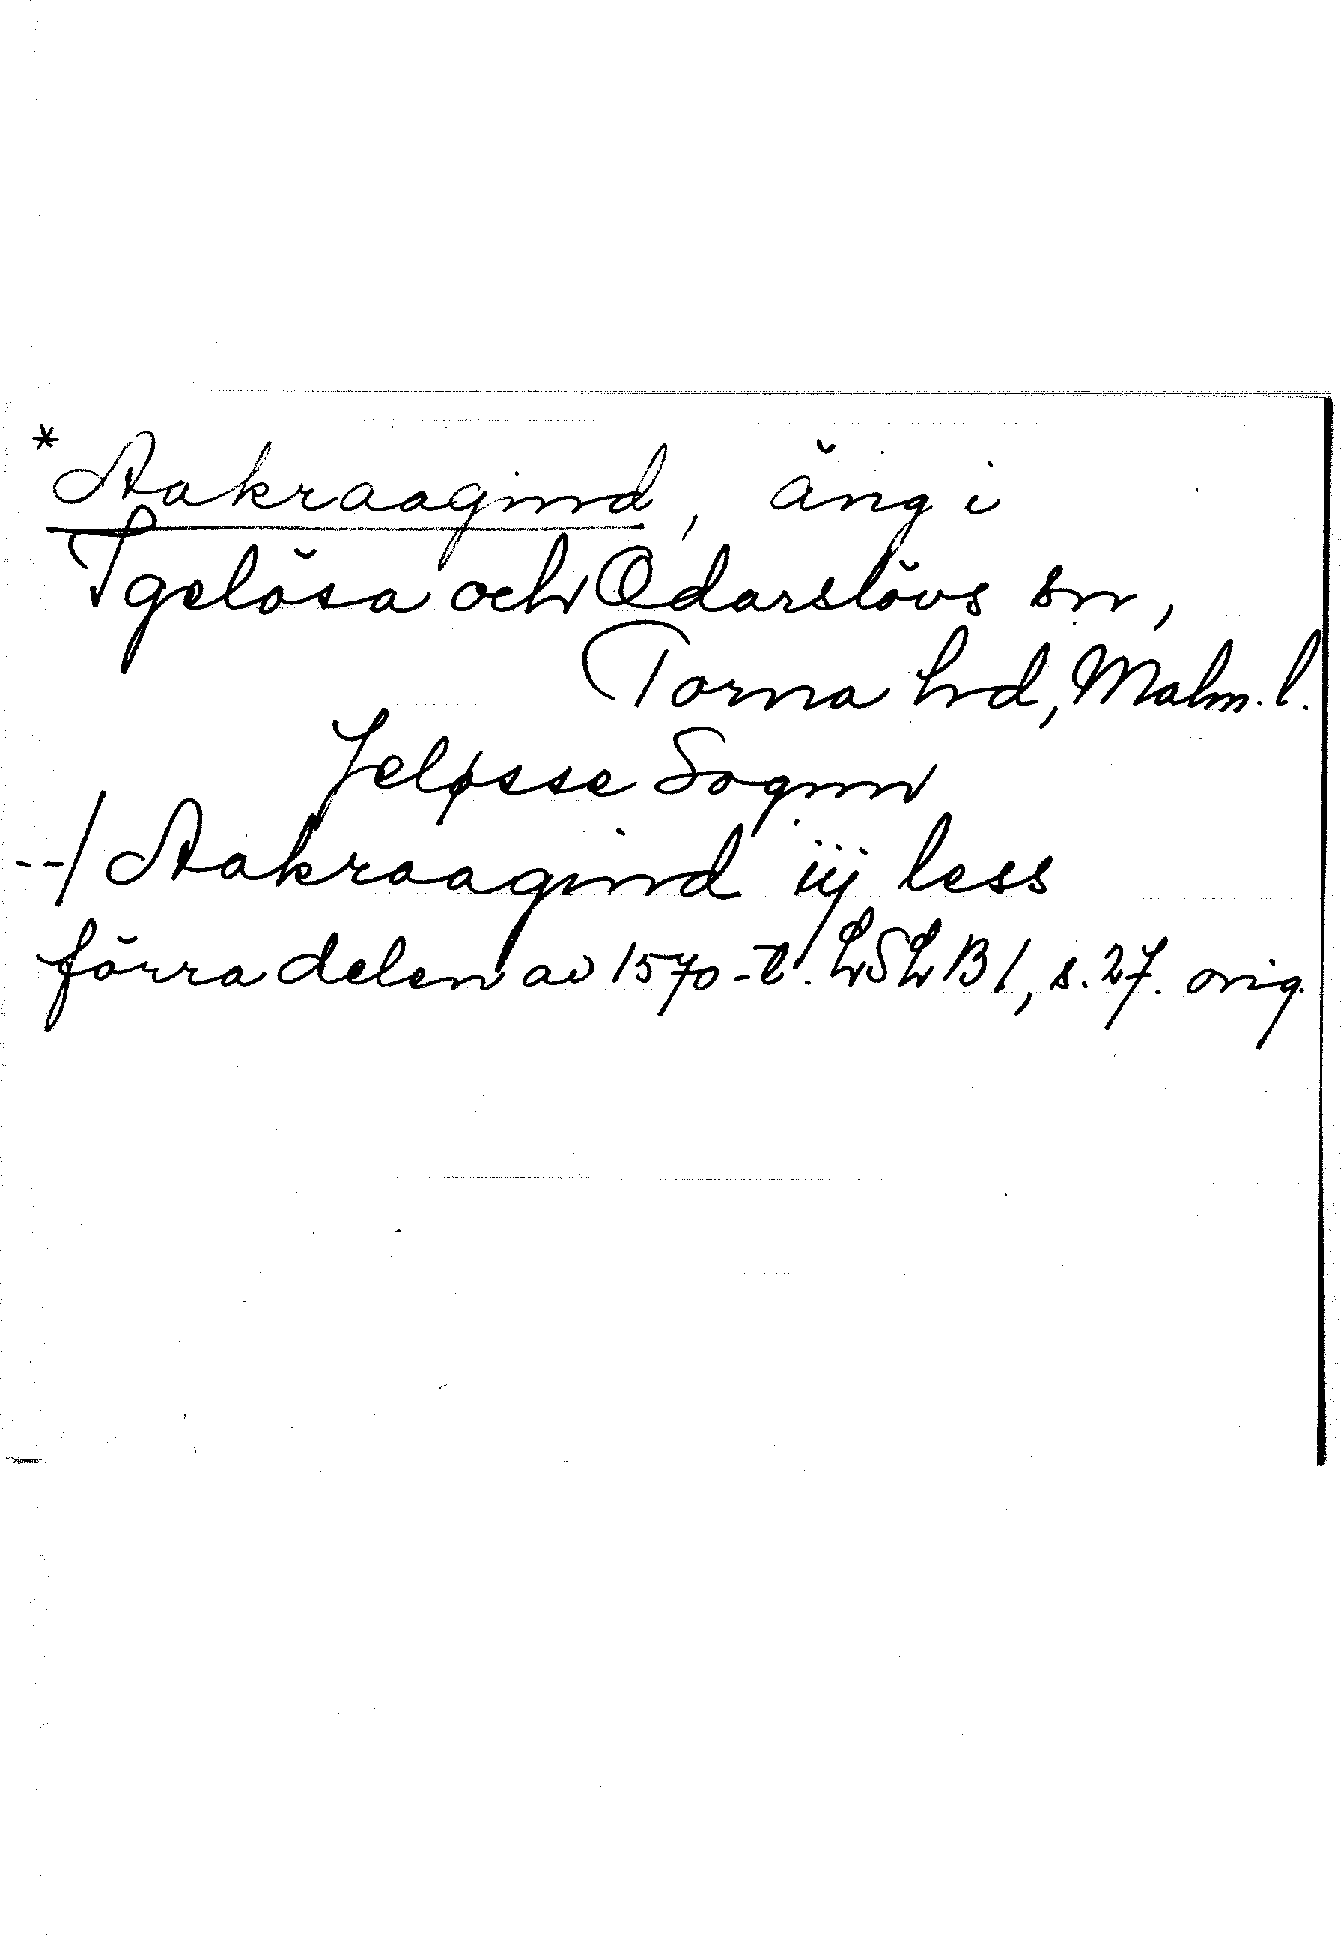 *Aakraagind, äng i
Igelösa och Odarslövs snr,
Torna hd, Malm. l.
Jeløsse Sognn
--/ Aakraagind iij less
förra delen av 1570-t. LSLB 1, s. 27. orig.